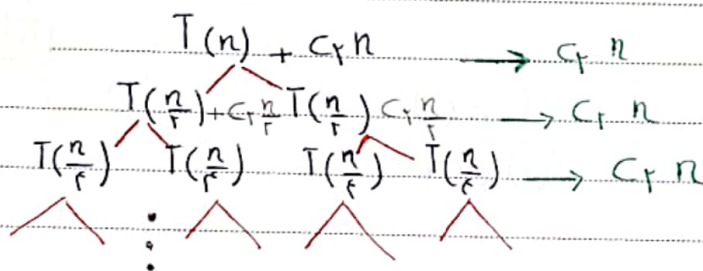 T(n) + C₂ n → C₂ n
T(n/۲) + C₂ n/۲ T(n/۲) C₂ n/۲ → C₂ n
T(n/۴) T(n/۴) T(n/۴) T(n/۴) → C₂ n